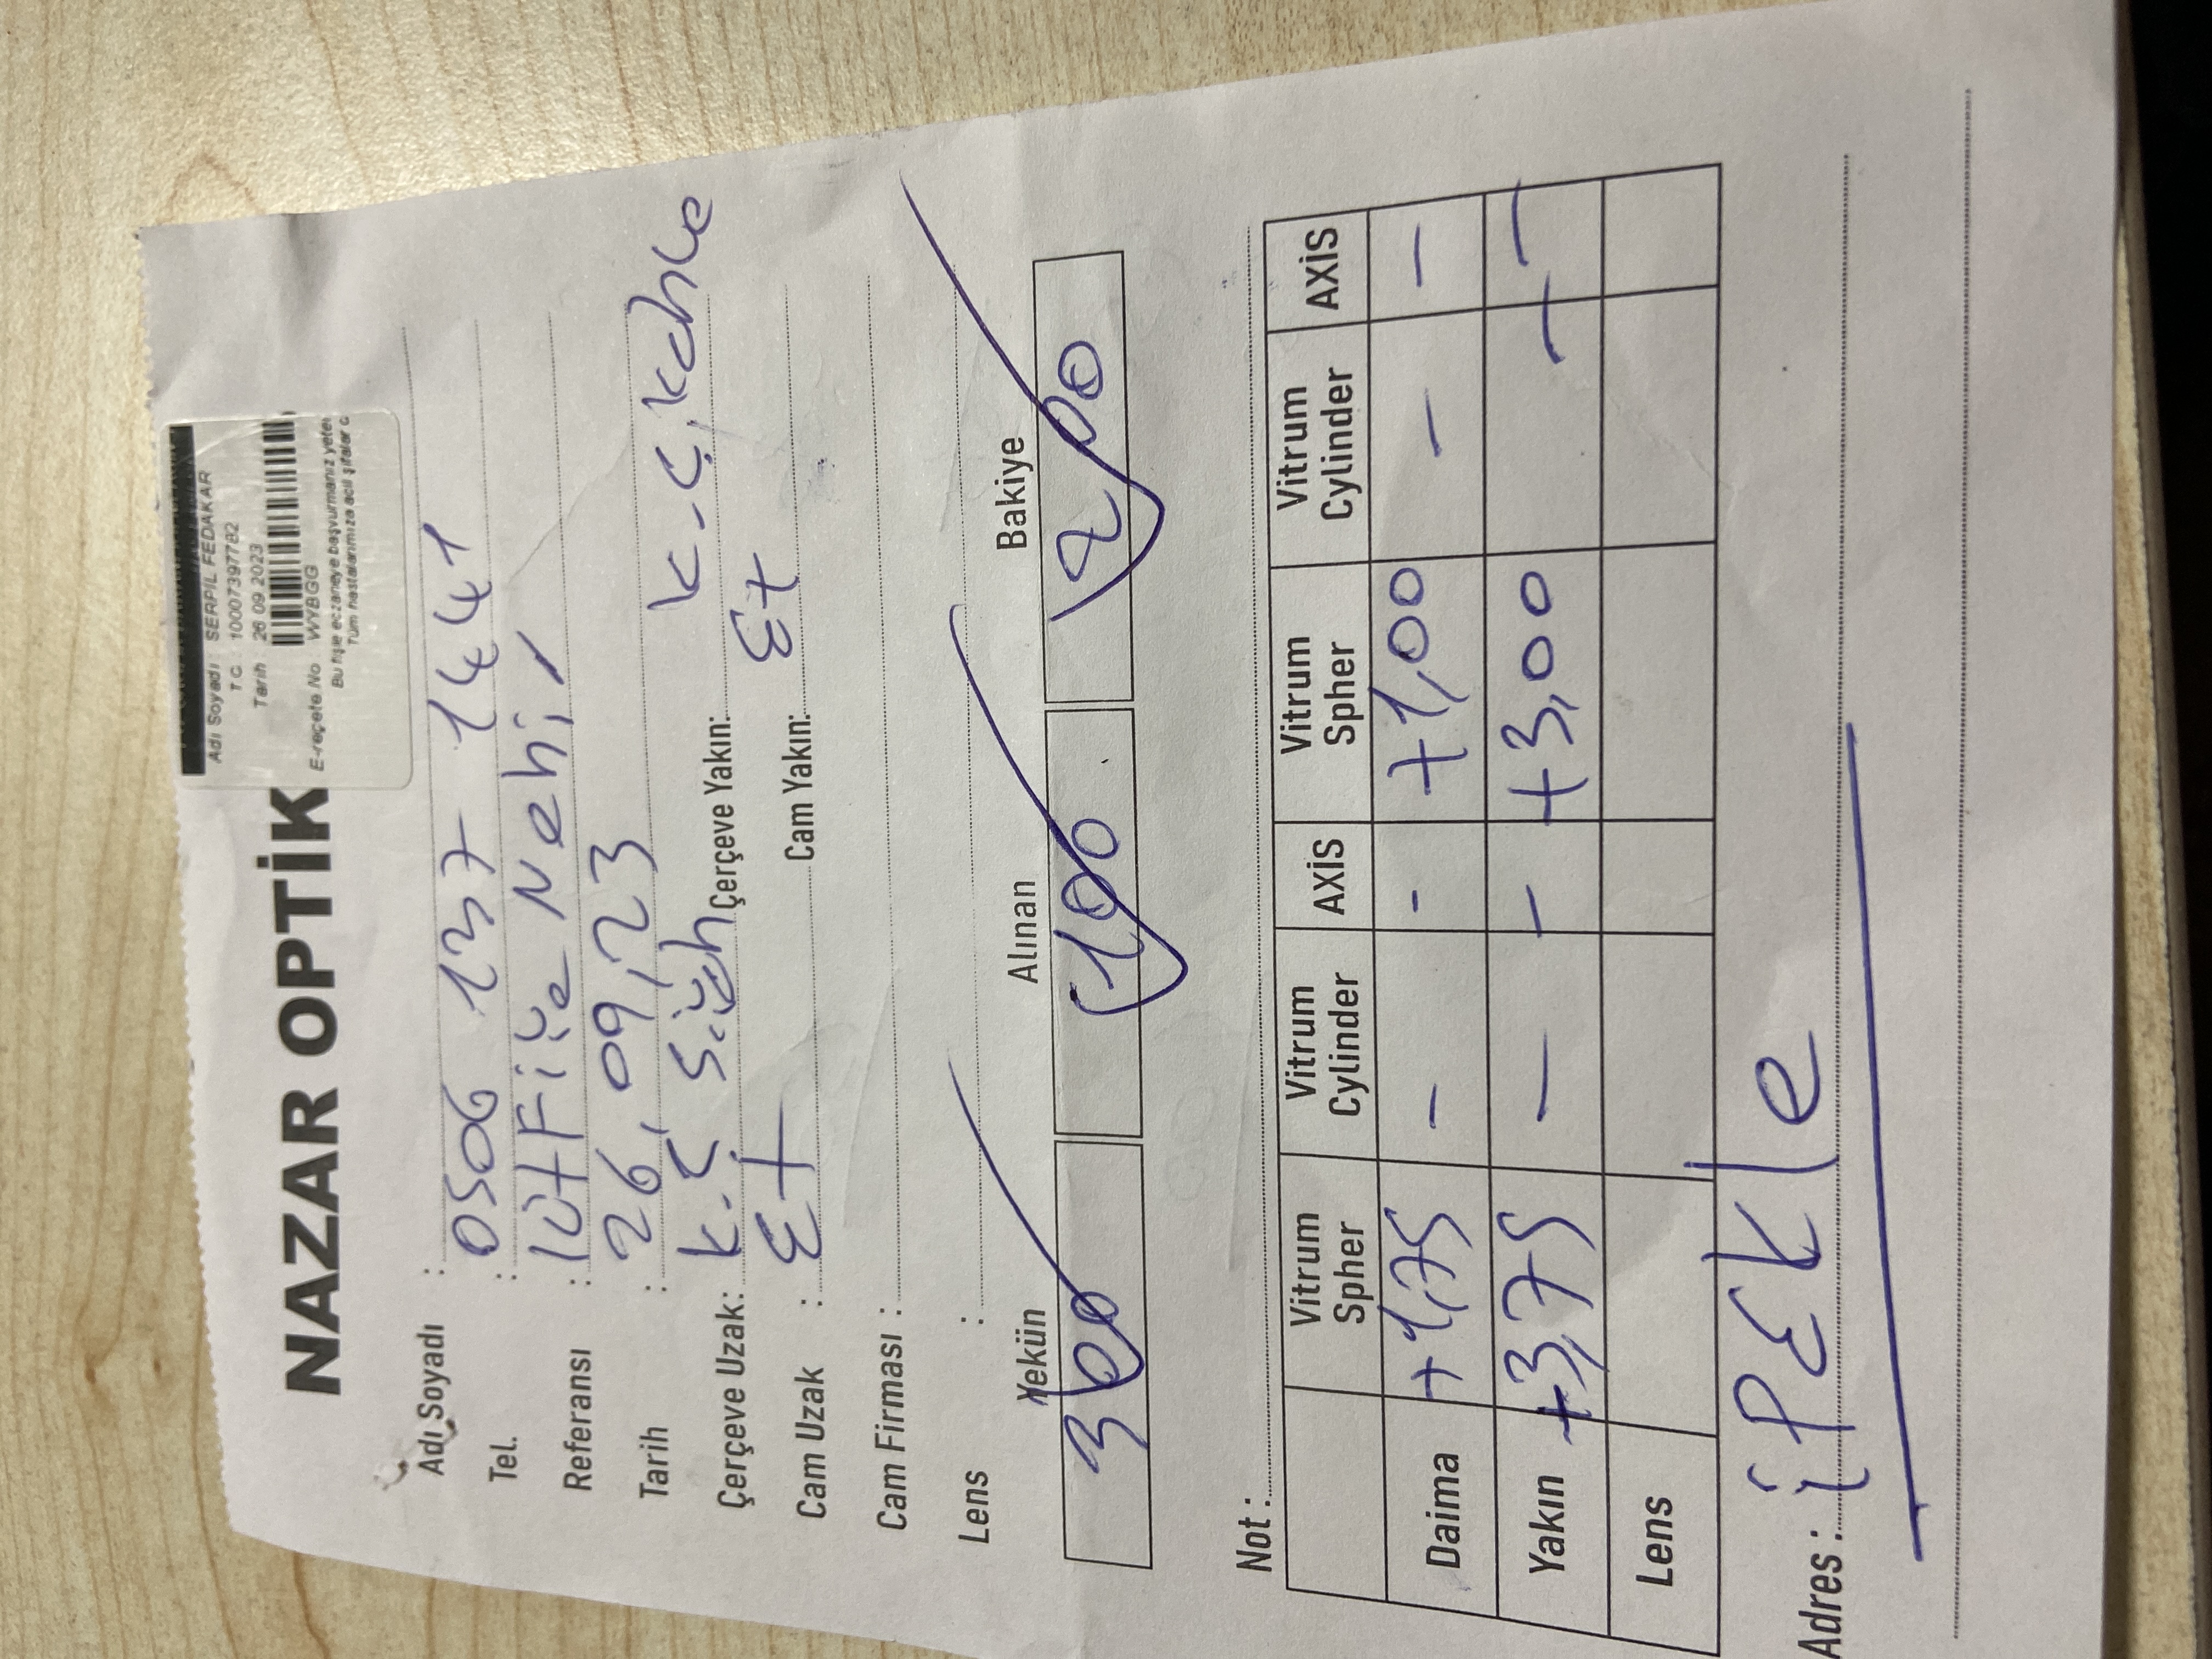 NAZAR OPTİK
Adı Soyadı : SERPİL FEDAKAR
TC : 10007397782
Tarih : 26.09.2023
E-reçete No WYBGG
Bu fişle eczaneye başvurmanız yeter
Tüm hastalarımıza acil şifalar
Adı Soyadı :
Tel. : 0506 137 1441
Referansı : lütFiye Nehir
Tarih : 26,09,23
Çerçeve Uzak: K.Ç Siyah Çerçeve Yakın: K.Ç. Kahve
Cam Uzak : Et Cam Yakın: Et
Cam Firması :
Lens :
Yekün Alınan Bakiye
300 100 200
Not :
Vitrum Spher Vitrum Cylinder AXİS Vitrum Spher Vitrum Cylinder AXİS
Daima +1,75 - - +1,00 - -
Yakın +3,75 - - +3,00 - -
Lens
Adres : ipEkle